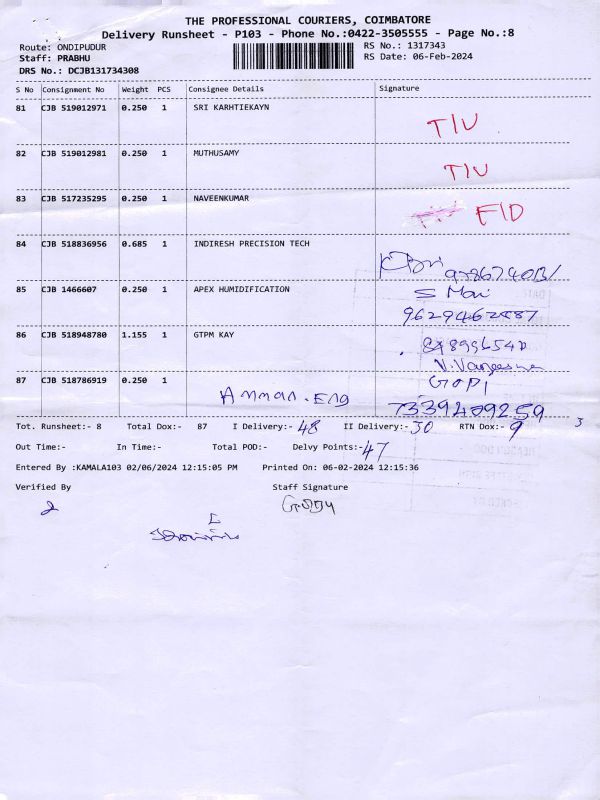 THE PROFESSIONAL COURIERS, COIMBATORE
Delivery Runsheet - P103 - Phone No.:0422-3505555 - Page No.:8
Route: ONDIPUDUR RS No.: 1317343
Staff: PRABHU RS Date: 06-Feb-2024
DRS No.: DCJB131734308
S No Consignment No Weight PCS Consignee Details Signature
81 CJB 519012971 0.250 1 SRI KARHTIEKAYN T/U
82 CJB 519012981 0.250 1 MUTHUSAMY T/U
83 CJB 517235295 0.250 1 NAVEENKUMAR F/D
84 CJB 518836956 0.685 1 INDIRESH PRECISION TECH
85 CJB 1466607 0.250 1 APEX HUMIDIFICATION S Mai
86 CJB 518948780 1.155 1 GTPM KAY
87 CJB 518786919 0.250 1 Amman. Eng GOPI
7339409259
Tot. Runsheet:- 8 Total Dox:- 87 I Delivery:- 48 II Delivery:- 30 RTN Dox:- 9 3
Out Time:- In Time:- Total POD:- Delvy Points:- 47
Entered By :KAMALA103 02/06/2024 12:15:05 PM Printed On: 06-02-2024 12:15:36
Verified By Staff Signature